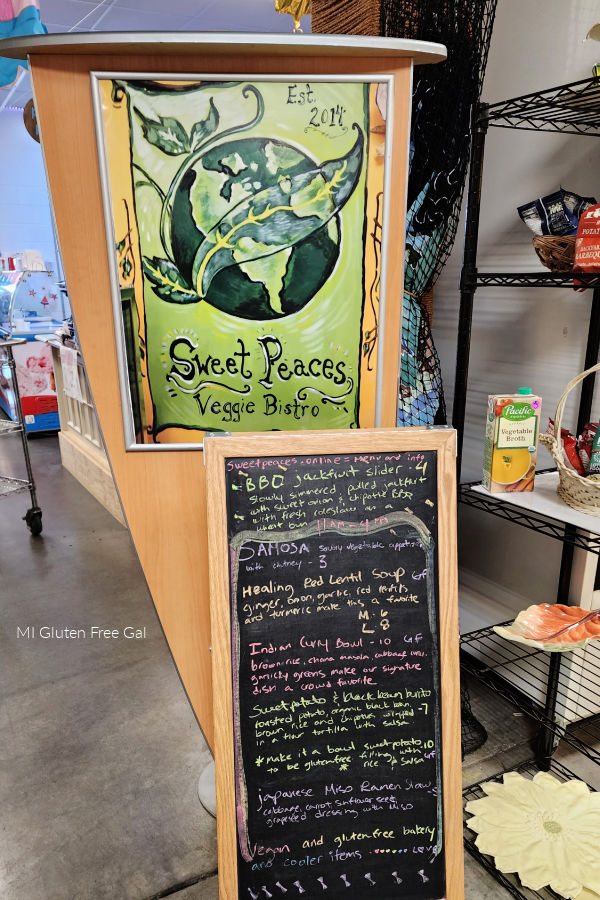 Est.
2014
Sweet Peaces
Veggie Bistro
Sweetpeaces.online = Menu and info
BBQ jackfruit slider - 4
slowly simmered, pulled jackfruit
with sweet onion & chipotle BBQ
with fresh coleslaw on a
wheat bun 11AM - 4PM
SAMOSA savory vegetable appetizer
with chutney - 3
Healing Red Lentil Soup GF
ginger, onion, garlic, red lentils
and turmeric make this a favorite
M - 6
L - 8
Indian Curry Bowl - 10 GF
brown rice, chana masala, cabbage
garlicky greens make our signature
dish a crowd favorite
Sweet potato & black bean burrito
roasted potato, organic black bean,
brown rice and chipotle wrapped -7
in a flour tortilla with salsa
*Make it a bowl sweet potato 10
to be glutenfree filling with GF
* rice & salsa
Japanese Miso Ramen Slaw
cabbage, carrot, sunflower seed,
dressing with miso
Vegan and glutenfree bakery
and cooler items LOVE
MI Gluten Free Gal
Pacific
FOODS
Vegetable
Broth